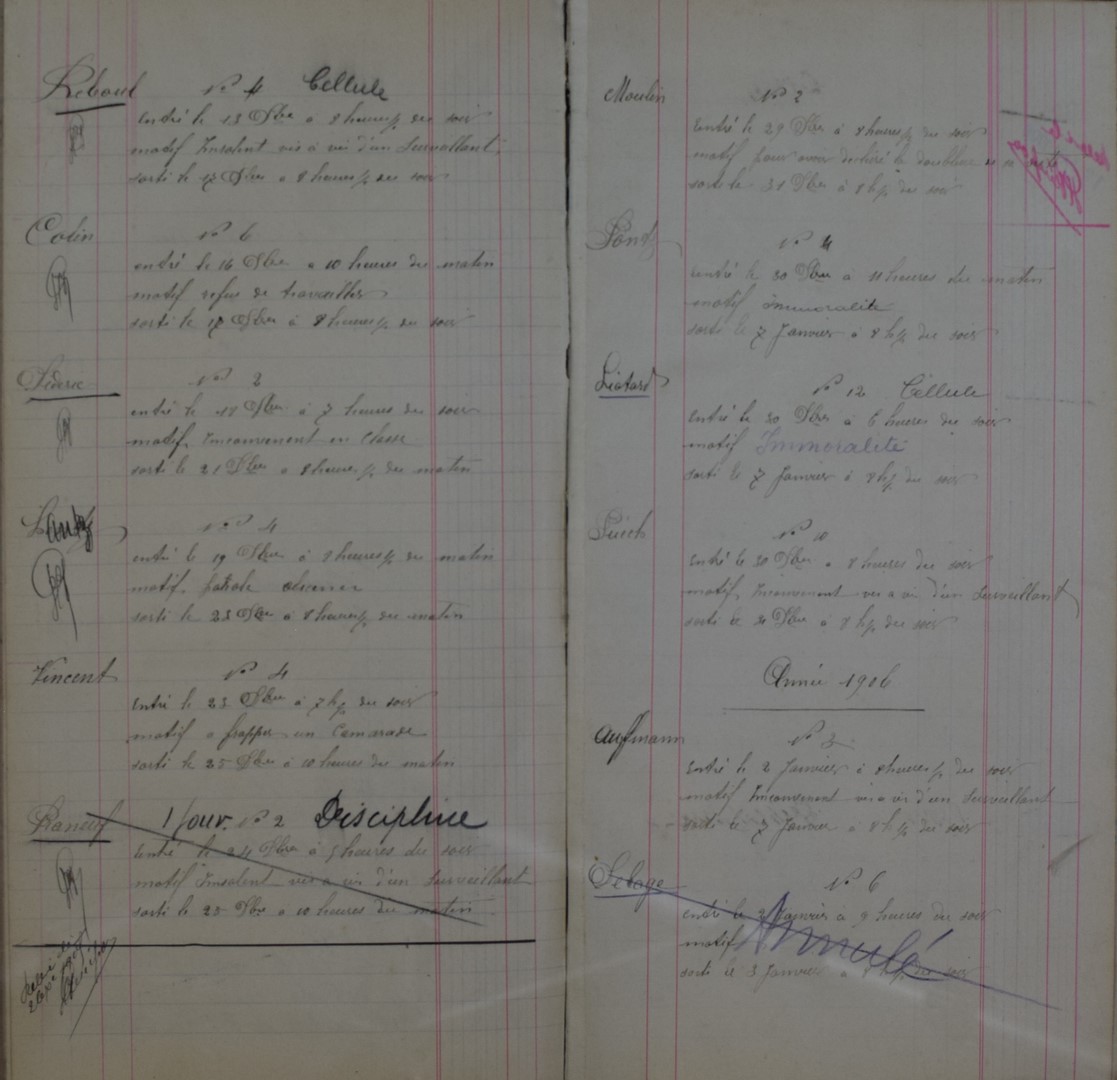 Reboul N° 4 Cellule
entré le 13 Xbre à 8 heures ½ du soir
motif Insolent vis à vis d'un Surveillant
sorti le 17 Xbre à 8 heures ½ du soir
Colin N° 6
entré le 16 Xbre à 10 heures du matin
motif refus de travailler
sorti le 17 Xbre à 8 heures ½ du soir
N° 2
entré le 18 Xbre à 7 heures du soir
motif Inconvenant en Classe
sorti le 21 Xbre à 8 heures ½ du matin
N° 4
entré le 19 Xbre à 8 heures ½ du matin
motif parole obscene
sorti le 23 Xbre à 8 heures ½ du matin
Vincent N° 4
entré le 23 Xbre à 7 h ½ du soir
motif a frapper un Camarade
sorti le 25 Xbre à 10 heures du matin
1 jour. N° 2 Discipline
entré le 24 Xbre à 5 heures du soir
motif Insolent vis a vis d'un Surveillant
sorti le 25 Xbre à 10 heures du matin
Moulin N° 2
entré le 29 Xbre à 8 heures ½ du soir
motif pour avoir déchiré la doublure
sorti le 31 Xbre à 8 h ½ du soir
N° 4
entré le 30 Xbre à 11 heures du matin
motif immoralité
sorti le 7 Janvier à 8 h ½ du soir
Liotard N° 12 Cellule
entré le 30 Xbre à 6 heures du soir
motif Immoralité
sorti le 7 Janvier à 8 h ½ du soir
Puech N° 10
entré le 30 Xbre à 8 heures du soir
motif Inconvenant vis a vis d'un Surveillant
sorti le 31 Xbre à 8 h ½ du soir
Année 1906
Auffmann N° 2
entré le 2 Janvier à 8 heures ½ du soir
motif Inconvenant vis a vis d'un Surveillant
sorti le 7 Janvier à 8 h ½ du soir
Selage N° 6
entré le 2 Janvier à 9 heures du soir
motif Annulé
sorti le 3 Janvier à 8 h ½ du soir